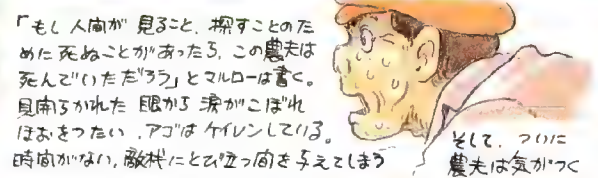 「もし人間が見ること、探すことのた
めに死ぬことがあったら、この農夫は
死んでいただろう」とマルローは書く。
見開らかれた眼から涙がこぼれ
ほおをつたい、アゴはケイレンしている。
時間がない、敵機にとび立つ間を与えてしまう
そして、ついに
農夫は気がつく